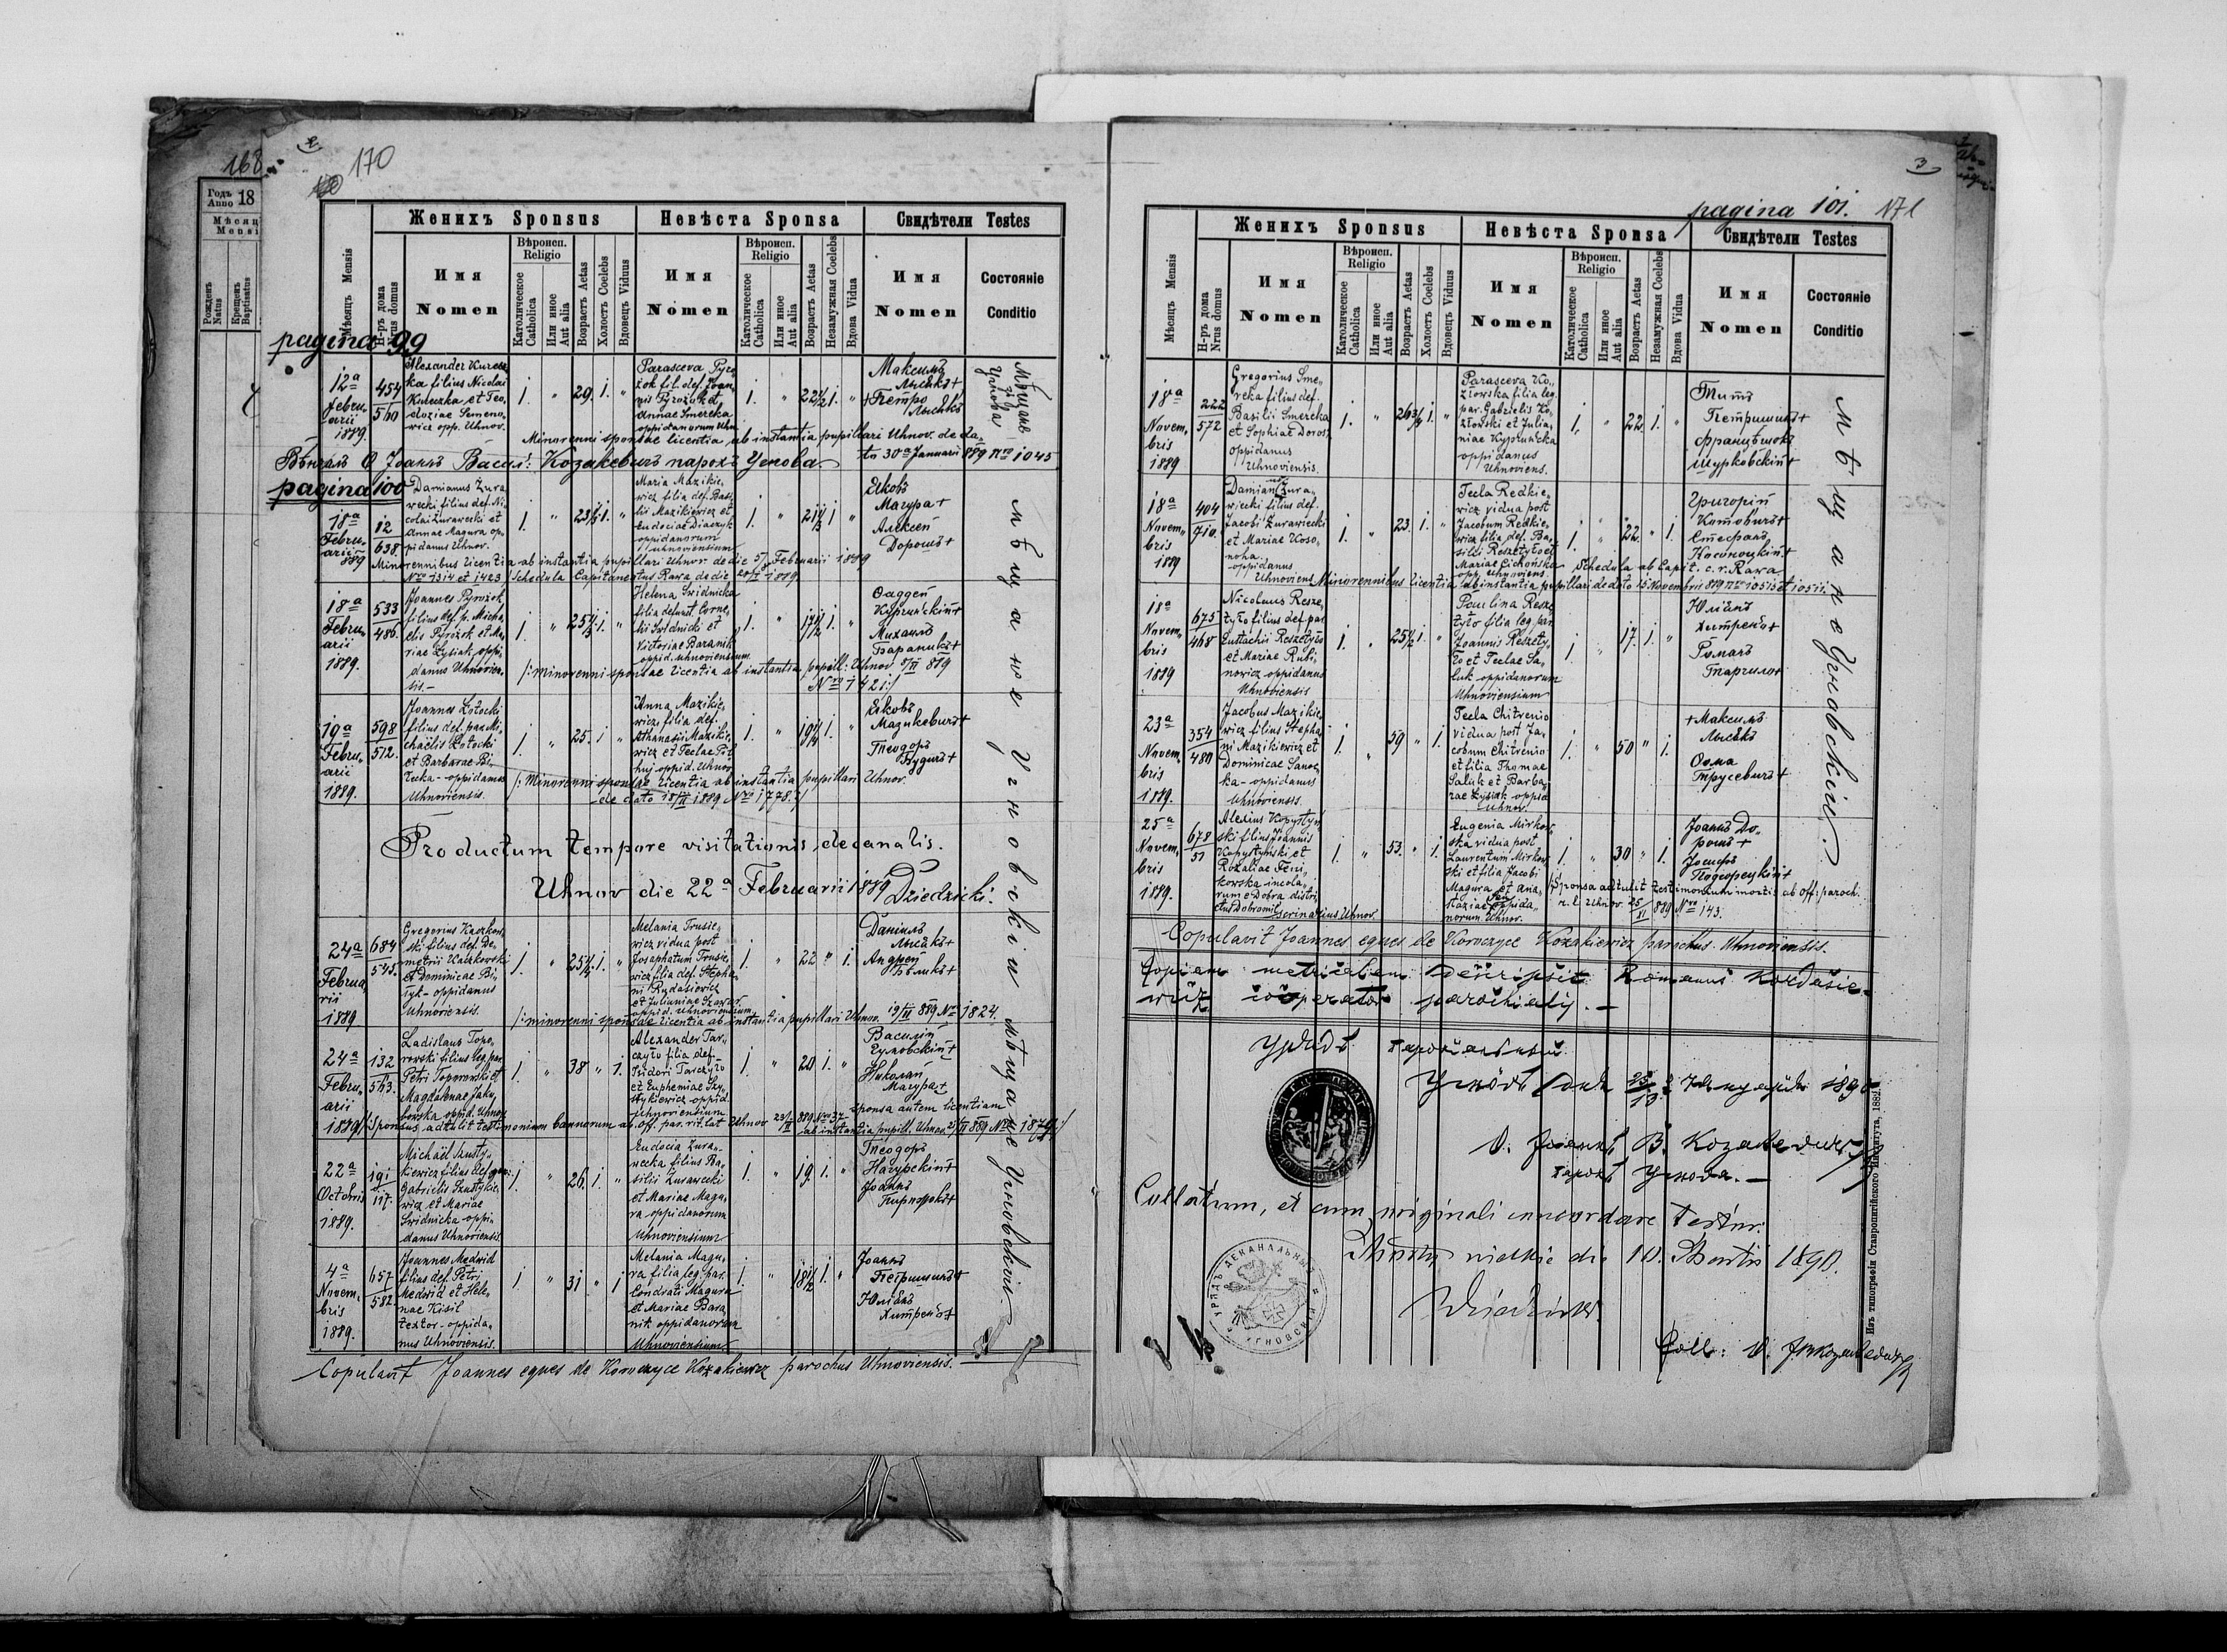 168
Годъ Anno 18
Мѣсяц
Mensi
Рожденъ Natus
Крещенъ Baptisatus
170
Мѣсяцъ Mensis
Н-ръ дома Nrus domus
Женихъ Sponsus
Невѣста Sponsa
Свидѣтели Testes
Имя Nomen
Вѣроисп. Religio
Католическое Catholica
Или иное Aut alia
Возрастъ Aetas
Холостъ Coelebs
Вдовецъ Viduus
Имя Nomen
Вѣроисп. Religio
Католическое Catholica
Или иное Aut alia
Возрастъ Aetas
Незамужная Coelebs
Вдова Vidua
Имя Nomen
Состояніе Conditio
pagina 99
12ª Februarii 1889.
454
560
Alexander Kurecz
ka filius Nicolai
Kureczka et Teo
doziae Semeno
wicz opp. Uhnov.
1. " 29. 1. "
Parasceva Pyro
żok fil. def. Joan
nis Pyrożok et
Annae Smereka
oppidanorum Uhn.
1. " 22½ 1. "
Максимъ
Лысѣкъ+
+Петро
Лысѣкъ
Мѣщане
Угнова
Minorenni sponsae licentia ab instantia pupillari Uhnov. de da
to 30ª Januarii 889 Nro 1045
Вѣнчалъ О Іоаннъ Васил: Козакевичъ парохъ Угнова
pagina 100
18ª Februarii 1889
12
638.
Damianus Żura
wecki filius def. Ni
colai Żurawecki et
Annae Magura op
pidanus Uhnov.
1. " 23½ 1. "
Maria Mazikie
wicz filia def. Basi
lii Mazikiewicz et
Eudociae Diaczyk
oppidanorum
Uhnoviensium
1. " 21½ 1 "
Яковъ
Магура+
Алексѣй
Дорошъ+
Minorennibus licentia ab instantia pupillari Uhnov. de die 5/II Februarii 1889
Nro 1314 et 1423 / Schedula Capitaneatus Rawa de die
18ª Februarii 1889.
533
486.
Joannes Pyrożok
filius def. p. Micha
elis Pyrożok et Ma
riae Łysiak oppi
danus Uhnovien
sis.—
1. " 25½ 1. "
Helena Swidnicka
filia defunct. Corne
lii Swidnicki et
Victoriae Baranik
oppid. Uhnoviensium
1. " 17½ 1. "
Ѳаддей
Михаилъ
Бараникъ+
/: Minorenni sponsae licentia ab instantia pupill: Uhnov 5/II 889
Nro 1421:/
19ª Februarii 1889.
598
572.
Joannes Łotocki
filius def. par. Mi
chaëlis Łotocki
et Barbarae
oppidanus
Uhnoviensis.
1. " 25. 1 "
Anna Mazikie
wicz, filia def.
Athanasii Mazikie
wicz et Teclae
oppid. Uhnov
1. " 19¼ 1. "
Яковъ
Мазикевичъ+
Теодоръ
/: Minorenni sponsae licentia ab instantia pupillari Uhnov.
de dato 18/II 1889 Nro 1778:/
Productum tempore visitationis decanalis.
Uhnov die 22ª Februarii 1889 Dziedzicki.
24ª Februarii 1889
684
543.
Gregorius Kaczkow
ski filius def. De
metrii Kaczkowski
et Dominicae Bi
łyk - oppidanus
Uhnoviensis.
1. " 25½ 1. "
Melania Trusie
wicz vidua post
Josaphatum Trusie
wicz filia def. Stepha
ni Rudasiowicz
et Julianiae
oppid. Uhnoviensium
1. " 22 " 1.
Даніилъ
Лысѣкъ+
Андрей
Бѣлыкъ+
/: minorenni sponsae licentia ab instantia pupillari Uhnov. 19/II 889 Nro 1824.
24ª Februarii 1889
132
563.
Ladislaus Topo
rowski filius leg. par.
Petri Toporowski et
Magdalenae Jaku
bowska oppid. Uhnov
1. " 38 " 1.
Alexander Tar
czyło filia def.
Isidori Tarczyło
et Euphemiae Szu
stykiewicz oppid.
Uhnoviensium
1. " 20 1. "
Василій
Николай
Магура+
/: Sponsus adtulit testimonium bannorum ab off. par. rit. lat Uhnov 889 Nro 37 sponsa autem licentiam
ab instantia pupill. Uhnov. II 889 Nro 1879:/
22ª Octobris 1889.
191
117.
Michaël Szusty
kiewicz filius def.
Gabrielis Szustykie
wicz et Mariae
Swidnicka oppi
danus Uhnoviensis
1 " 26. 1. "
Eudocia Żura
wecka filius Ba
silii Żurawecki
et Mariae Magu
ra oppidanorum
Uhnoviensium
1. " 19. 1. "
Теодоръ
Іоаннъ
Пирожокъ+
4ª Novembris 1889.
657
582
Joannes Medwid
filius def. Petri
Medwid et Hele
nae Kisil
textor - oppida
nus Uhnoviensis.
1 " 31 " 1
Melania Magu
ra filia leg. par.
Condrati Magura
et Mariae Bara
nik oppidanorum
Uhnoviensium
1. " 18½ 1. "
Іоаннъ
Петришинъ+
Юліанъ
Хитрень+
мѣщане Угновскіи
мѣщане Угновскіи.
Copulavit Joannes eques de Koroczyce Kozakiewicz parochus Uhnoviensis.
3
pagina 101. 171
Мѣсяцъ Mensis
Н-ръ дома Nrus domus
Женихъ Sponsus
Невѣста Sponsa
Свидѣтели Testes
Имя Nomen
Вѣроисп. Religio
Католическое Catholica
Или иное Aut alia
Возрастъ Aetas
Холостъ Coelebs
Вдовецъ Viduus
Имя Nomen
Вѣроисп. Religio
Католическое Catholica
Или иное Aut alia
Возрастъ Aetas
Незамужная Coelebs
Вдова Vidua
Имя Nomen
Состояніе Conditio
18ª Novembris 1889
222
572
Gregorius Sme
reka filius def.
Basilii Smereka
et Sophiae Dorosz
oppidanus
Uhnoviensis.
1. " 26¾ 1. "
Parasceva Ko
złowska filia leg.
par. Gabrielis Ko
złowski et Julia
niae Kyprunicka
oppidanus
Uhnoviens.
1. " 22. 1. "
Титъ
Петришинъ+
Францѣшокъ
Щурковскій+
18ª Novembris 1889
404
710.
Damian Żura
wiecki filius def.
Jacobi Żurawiecki
et Mariae Koso
noha.
oppidanus
Uhnoviens
1. " 23. 1. "
Tecla Redkie
wicz vidua post
Jacobum Redkie
wicz filia def. Ba
silii Reszetyło et
Mariae Cichońska
opp. Uhnoviens.
1. " 22 " 1.
Григорій
Котовичъ+
Стефанъ
Schedula ab Capit. c. r. Rawa
Minorennibus licentia ab instantia pupillari de dato 15 Novembris 889 Nro 10515 et 10511.
18ª Novembris 1889
675
468
Nicolaus Resze
tyło filius def. par.
Eustachii Reszetyło
et Mariae Rubi
nowicz oppidanus
Uhnoviensis
1. " 25½ 1. "
Paulina Resze
tyło filia leg. par.
Joannis Reszety
ło et Teclae Sa
luk oppidanorum
Uhnoviensium
1. " 17. 1. "
Юліанъ
Хитрень+
Романъ
Тарчило+
23ª Novembris 1889.
354
489
Jacobus Mazikie
wicz filius Stepha
ni Mazikiewicz et
Dominicae Sanoc
ka - oppidanus
Uhnoviensis.
1. " 59 " 1.
Tecla Chitrenio
vidua post Ja
cobum Chitrenio
et filia Thomae
Saluk et Barba
rae Łysiak oppid.
Uhnov.
1. " 50 " 1.
+Максимъ
Лысѣкъ
Ѳома
Трусевичъ+
25ª Novembris 1889.
678
51
Alexius Kopystyn
ski filius Joannis
Kopystynski et
Rozaliae Feni
kowska incola
rum e Dobra distri
ctus Dobromil
scriniarius Uhnov.
1. " 53. " 1.
Eugenia Mirkow
ska vidua post
Laurentum Mirkow
ski et filia Jacobi
Magura et Ana
staziae oppida
norum Uhnov.
1. " 30 " 1.
Іоаннъ До
рошъ+
Іосифъ
/: Sponsa adtulit testimonium mortis ab off: paroch.
r. l. Uhnov. 25/XI 889 Nro 143.
мѣщане Угновскіи.
Copulavit Joannes eques de Koroczyce Kozakiewicz parochus Uhnoviensis.
Copiam metricalem descripsit Romanus Kordasie
wicz cooperator parochialis.—
Урядъ парохіальный
Угнôвъ дня Януарія 1890
О. Іоаннъ В. Козакевичъ
парохъ Угнова.—
Collatum, et cum originali concordare testor.
die 10. Martii 1890.
Dziedzicki.
УРЯДЪ ДЕКАНАЛЬНЫЙ УГНОВСКІЙ
Coll: О. І В Козакевичъ
Изъ типографіи Ставропигійского Института, 1882.